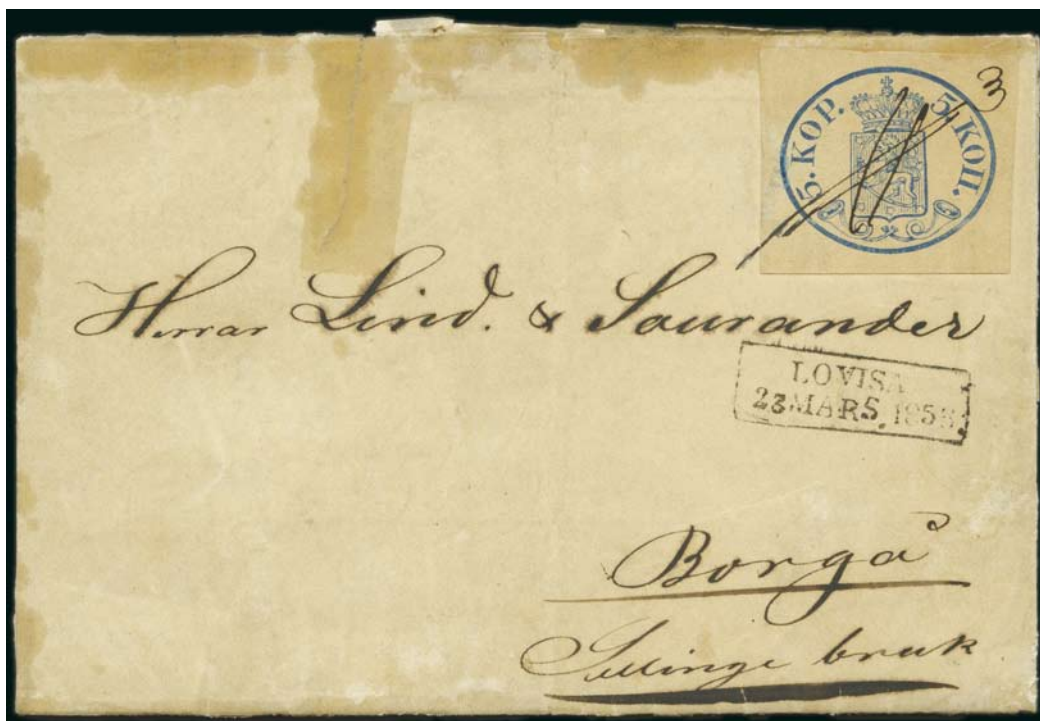 5. KOP. 5. КОП.
3
Herrar Lind. & Saurander
LOVISA
23 MARS. 185
Borgå
bruk